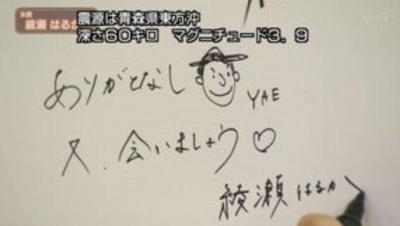 女優
綾瀬 はるか
震源は青森県東方沖
深さ60キロ マグニチュード3.9
ありがとなし
YAE
又、会いましょう♡
綾瀬はるか